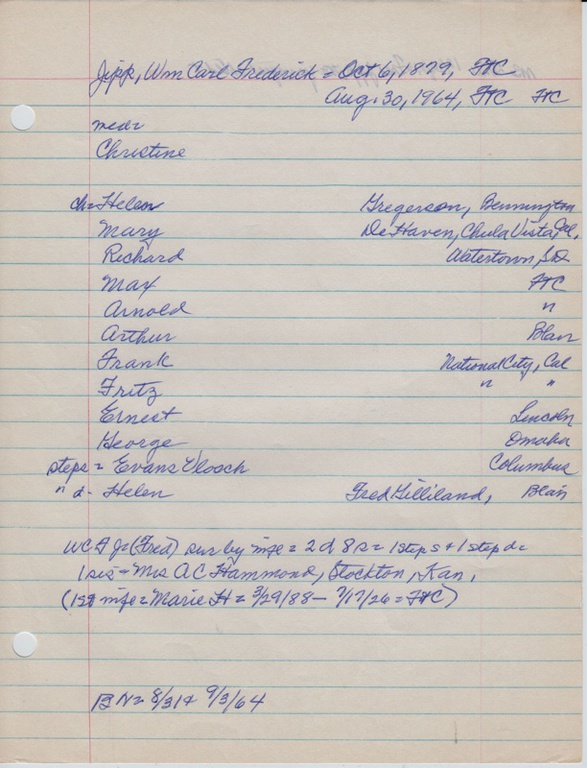 Jipp, Wm Carl Frederick = Oct 6, 1879, FtC
Aug. 30, 1964, FtC FtC
med=
Christine
ch= Helen Gregerson, Bennington
Mary DeHaven, Chula Vista, Cal,
Richard Watertown, SD
Max FtC
Arnold "
Arthur Blair
Frank National City, Cal
Fritz " "
Ernest Lincoln
George Omaha
steps = Evans Vlosch Columbus
" d- Helen Fred Gilliland, Blair
WCF J= (Fred) sur by wife = 2d 8s= 1 step s + 1 step d=
1 sis = Mrs AC Hammond, Stockton, Kan,
(1st wife = Marie H = 3/29/88 - 7/17/26 = FtC)
BN= 8/31 & 9/3/64